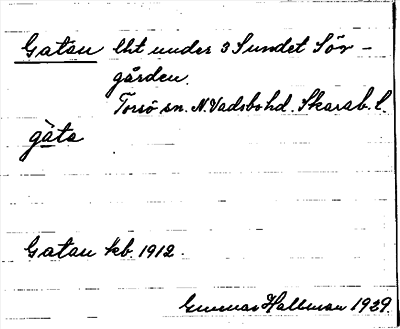 Gatan lht under 3 Sundet Sör-
gården.
Torsö sn. N. Vadsbo hd. Skarab. l.
gàta
Gatan kb. 1912.
Gunnar Hallman 1929.